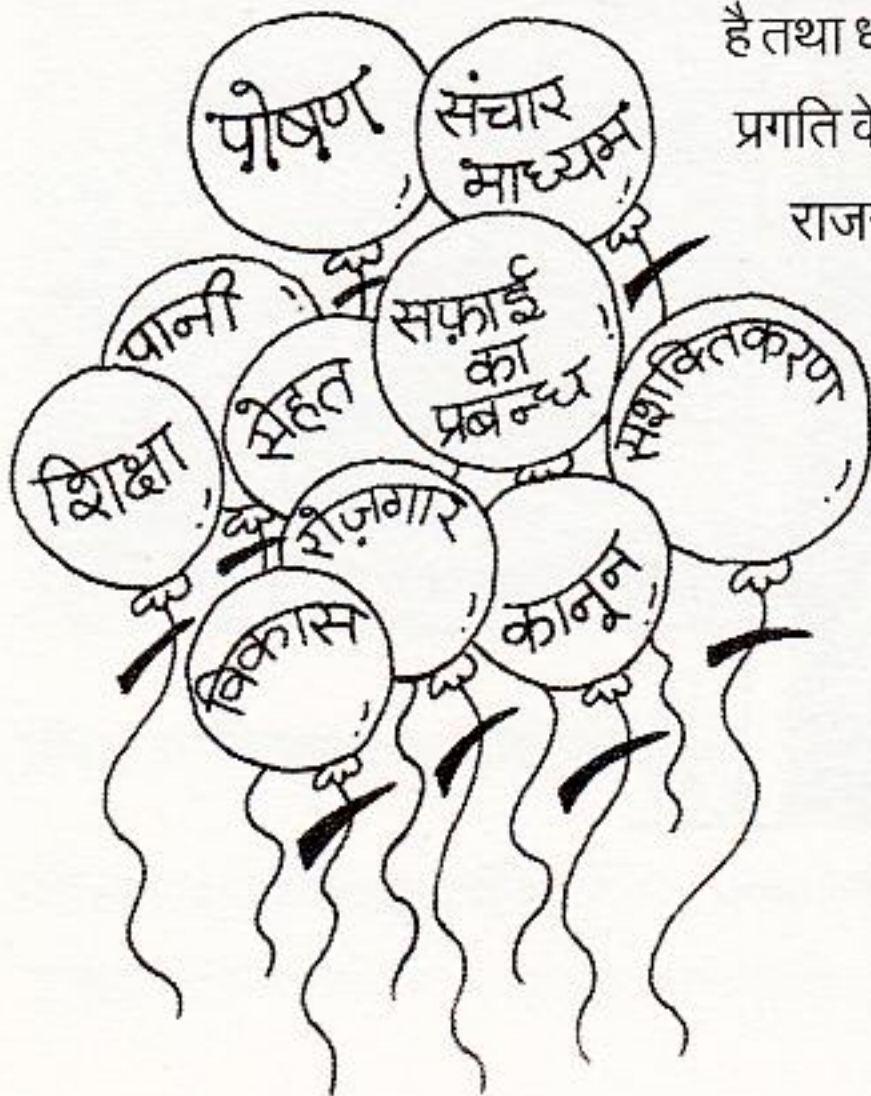 है तथा
प्रगति के
पोषण
संचार
माध्यम
पानी
सेहत
सफ़ाई
का
प्रबन्ध
सशक्तिकरण
शिक्षा
रोज़गार
कानून
विकास